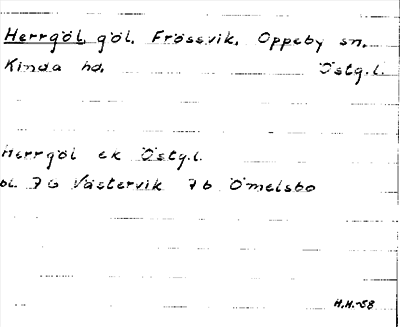 Herrgöl, göl, Frössvik, Oppeby sn,
Kinda hd, Östg.l.
Herrgöl ek Östg.l.
bl 7G Västervik 7b Ömelsbo
H.H.-58